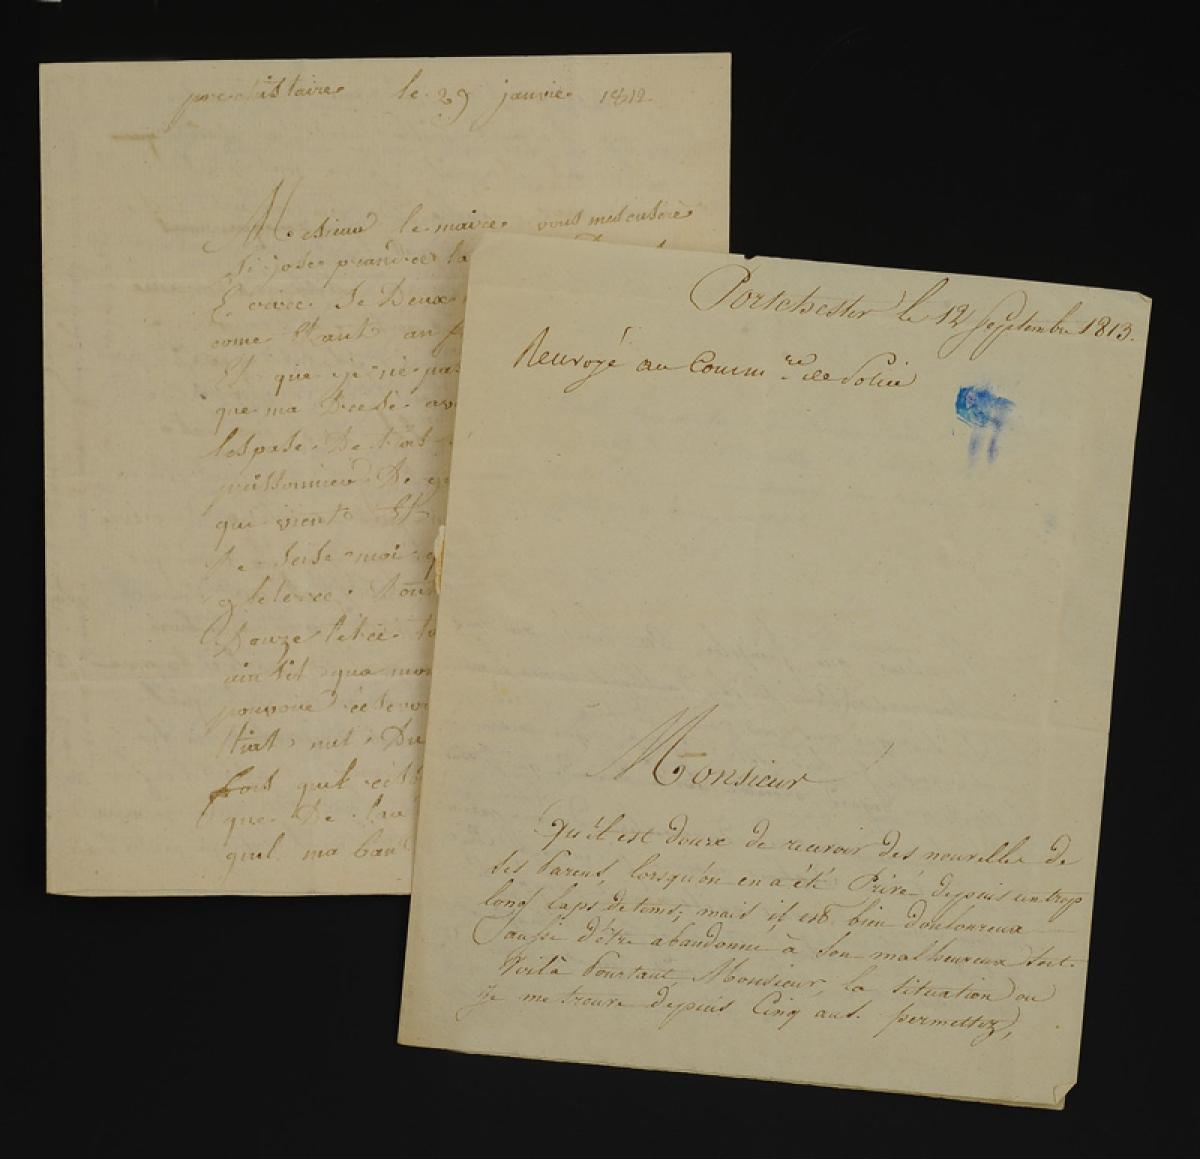 prechistaire le 29 janvie 1812
Mecsieur le maire vous mes cuserè
Si jose prandre la
Ecrire Je Deux
come Etant an
Et que je ne pas
que ma Dresse av
lespase De trois
prissonnier De
qui vient Et
De moi
gleterre Don
Douze
ain sit que mon
pouvoir
nuit Du
fois quil
que De
quil ma ban
Portchester le 12 Septembre 1813.
Renvoyé au Comm.re de Police
Monsieur
Qu'il est douxe de recevoir des nouvelles de
ses Parens, lorsqu'on en a été Privé depuis un trop
long laps de tems; mais il est bien douloureux
aussi d'être abandonné à son malheureux sort.
Voilà Pourtant, Monsieur, la situation ou
je me trouve depuis Cinq ans. permettez,